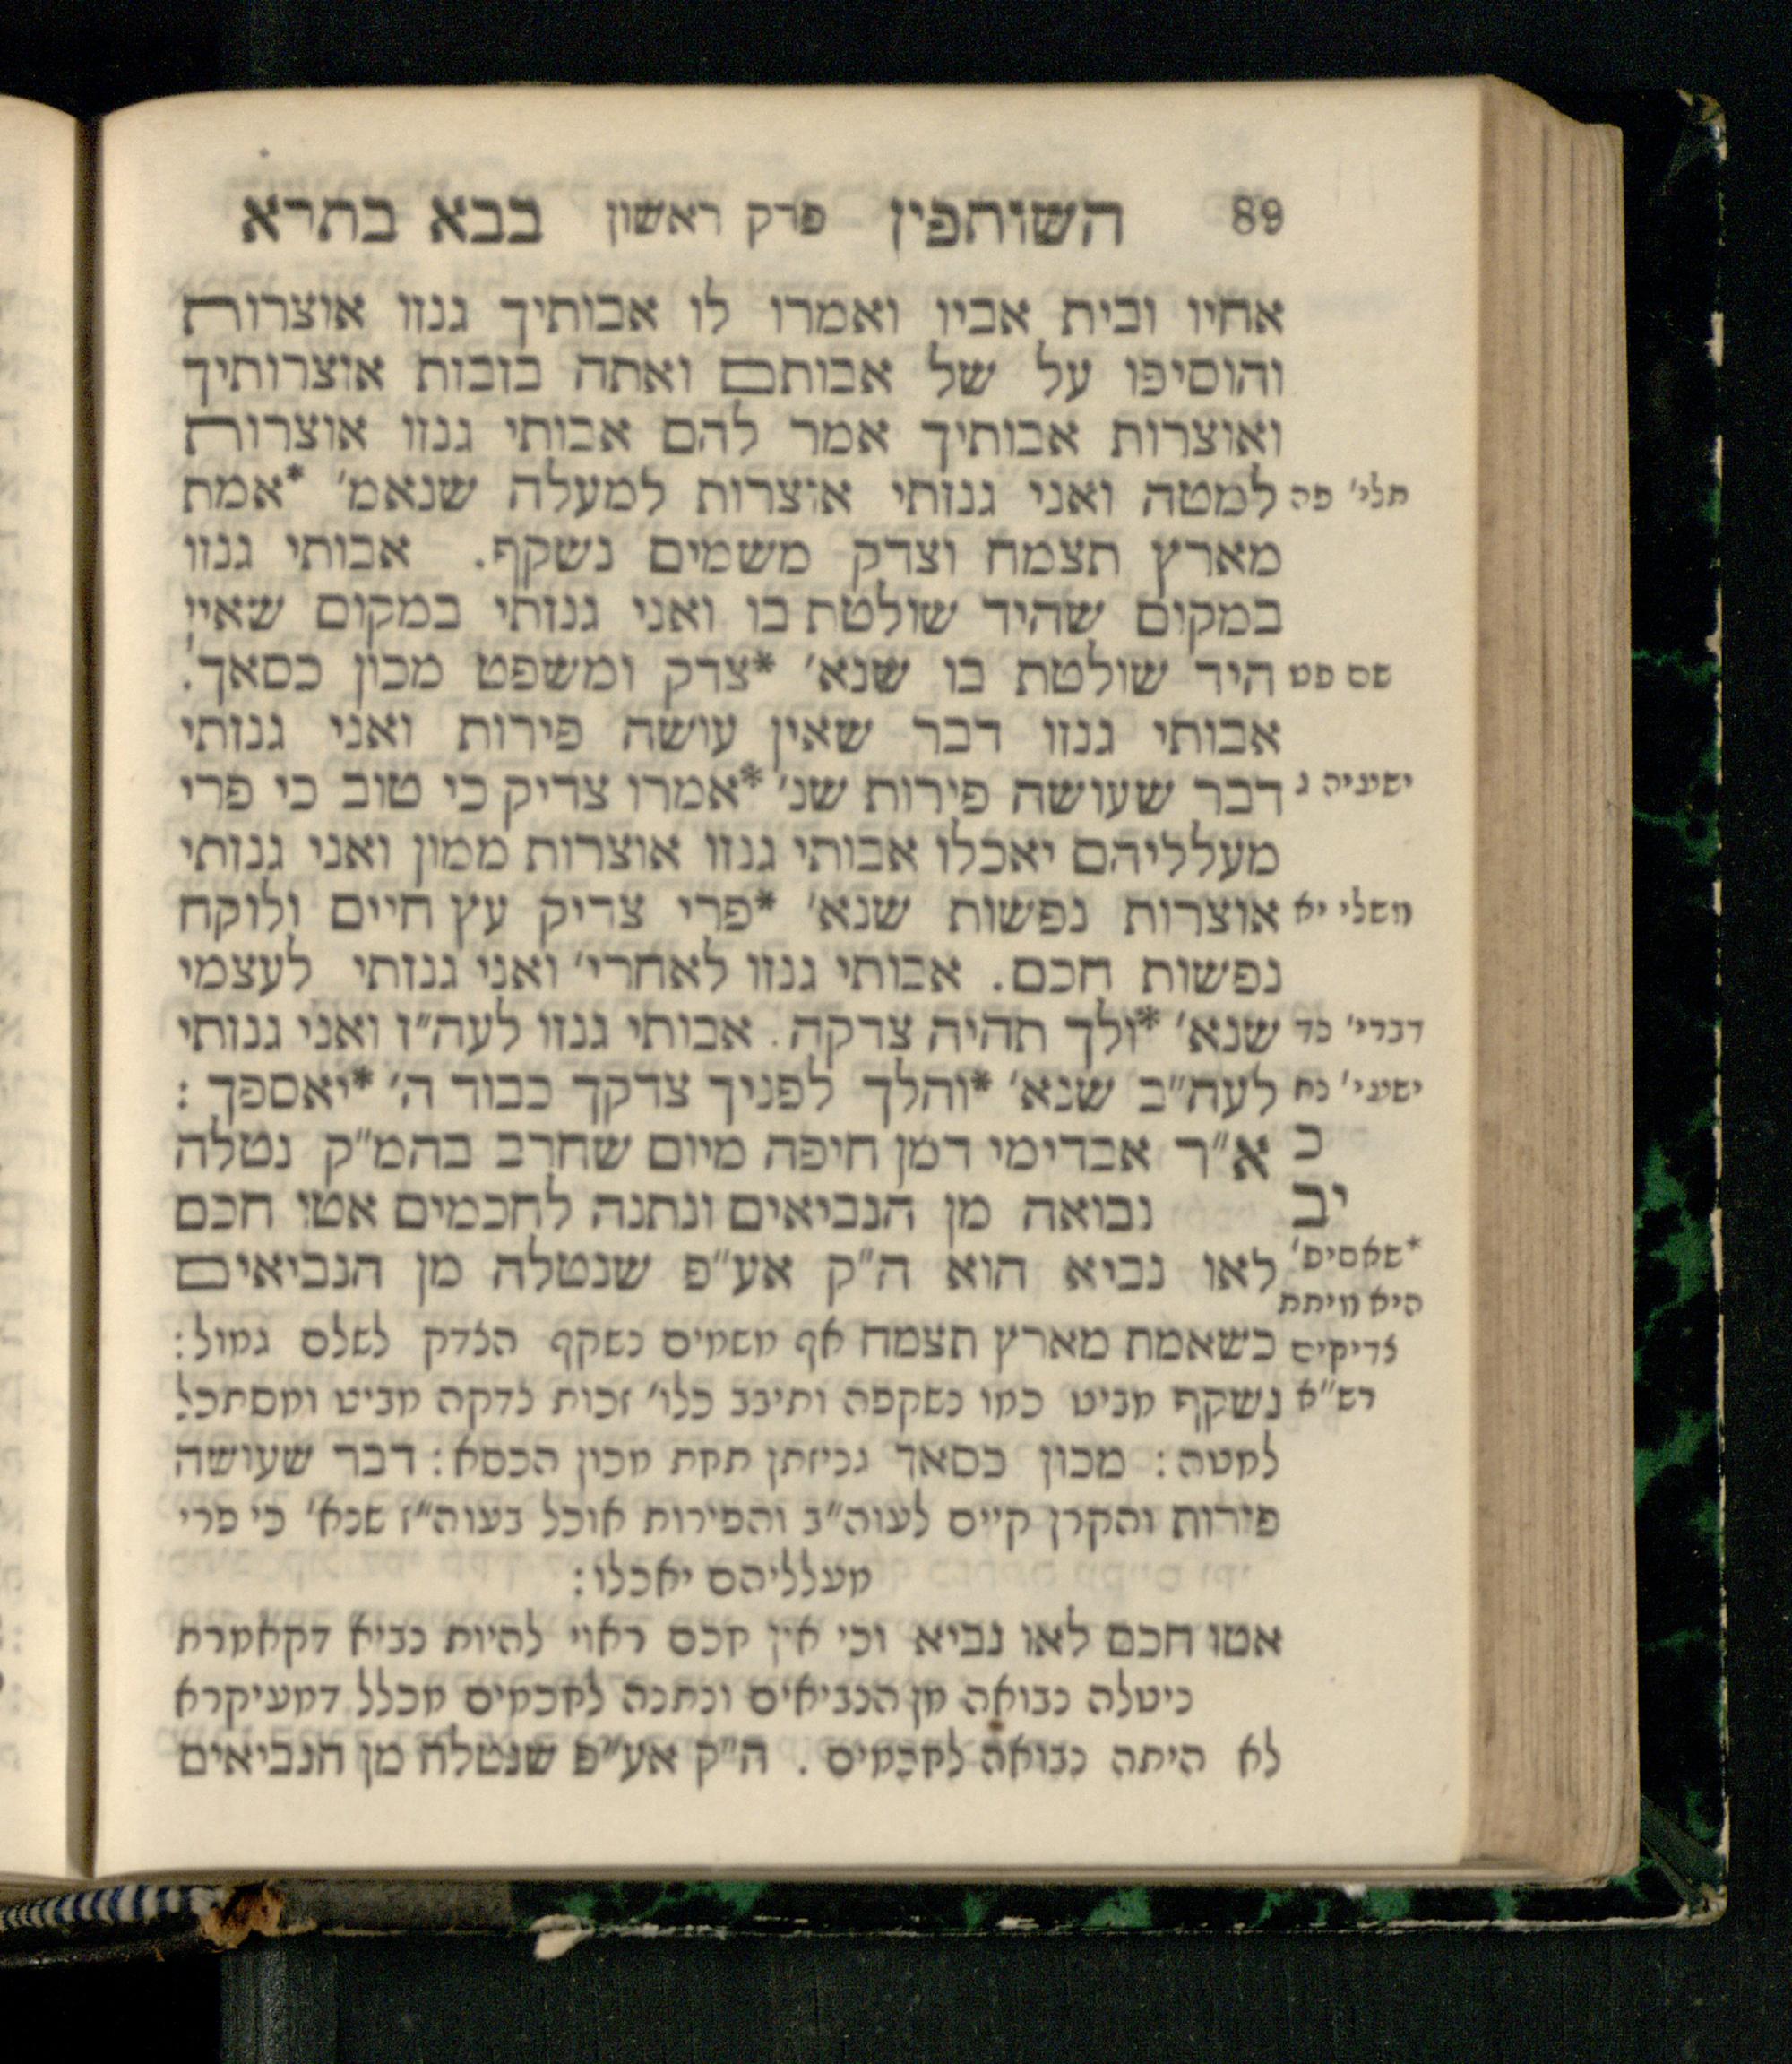 89 השותפין פרק ראשון בבא בתרא
אחיו ובית אביו ואמרו לו אבותיך גנזו אוצרות
והוסיפו על של אבותם ואתה בזבזת אוצרותיך
ואוצרות אבותיך אמר להם אבותי גנזו אוצרות
תלי׳ פה למטה ואני גנזתי אוצרות למעלה שנאמ׳ *אמת
מארץ תצמח וצדק משמים נשקף. אבותי גנזו
במקום שהיד שולטת בו ואני גנזתי במקום שאין
שם פט היד שולטת בו שנא׳ *צדק ומשפט מכון כסאך.
אבותי גנזו דבר שאין עושה פירות ואני גנזתי
ישעיה ג דבר שעושה פירות שנ׳ *אמרו צדיק כי טוב כי פרי
מעלליהם יאכלו אבותי גנזו אוצרות ממון ואני גנזתי
משלי יא אוצרות נפשות שנא׳ *פרי צדיק עץ חיים ולוקח
נפשות חכם. אבותי גנזו לאחרי׳ ואני גנזתי לעצמי
דברי׳ כד שנא׳ *ולך תהיה צדקה. אבותי גנזו לעה״ז ואני גנזתי
ישעי׳ נח לעה״ב שנא׳ *והלך לפניך צדקך כבוד ה׳ *יאספך :
כ א״ר אבדימי דמן חיפה מיום שחרב בהמ״ק נטלה
יב נבואה מן הנביאים ונתנה לחכמים אטו חכם
*שאסיפ׳ לאו נביא הוא ה״ק אע״פ שנטלה מן הנביאים
היא מיתת
צדיקים כשאמת מארץ תצמח אף משמים נשקף הצדק לשלם גמול:
רש״א נשקף מביט כמו נשקפה ותיבב כלו׳ זכות צדקה מביט ומסתכל
למטה: מכון כסאך גניזתן תחת מכון הכסא: דבר שעושה
פירות והקרן קיים לעוה״ב והפירות אוכל בעוה״ז שנא׳ כי פרי
מעלליהם יאכלו:
אטו חכם לאו נביא וכי אין חכם ראוי להיות נביא דקאמרת
ניטלה נבואה מן הנביאים ונתנה לחכמים מכלל דמעיקרא
לא היתה נבואה לחכמים . ה״ק אע״פ שנטלה מן הנביאים